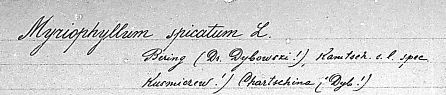 Myriophyllum spicatum L.
Bering (Dr. Dybowski!), Kamtsch. s. l. spec
Kusmicrow!) Chartschina (Dyb!)